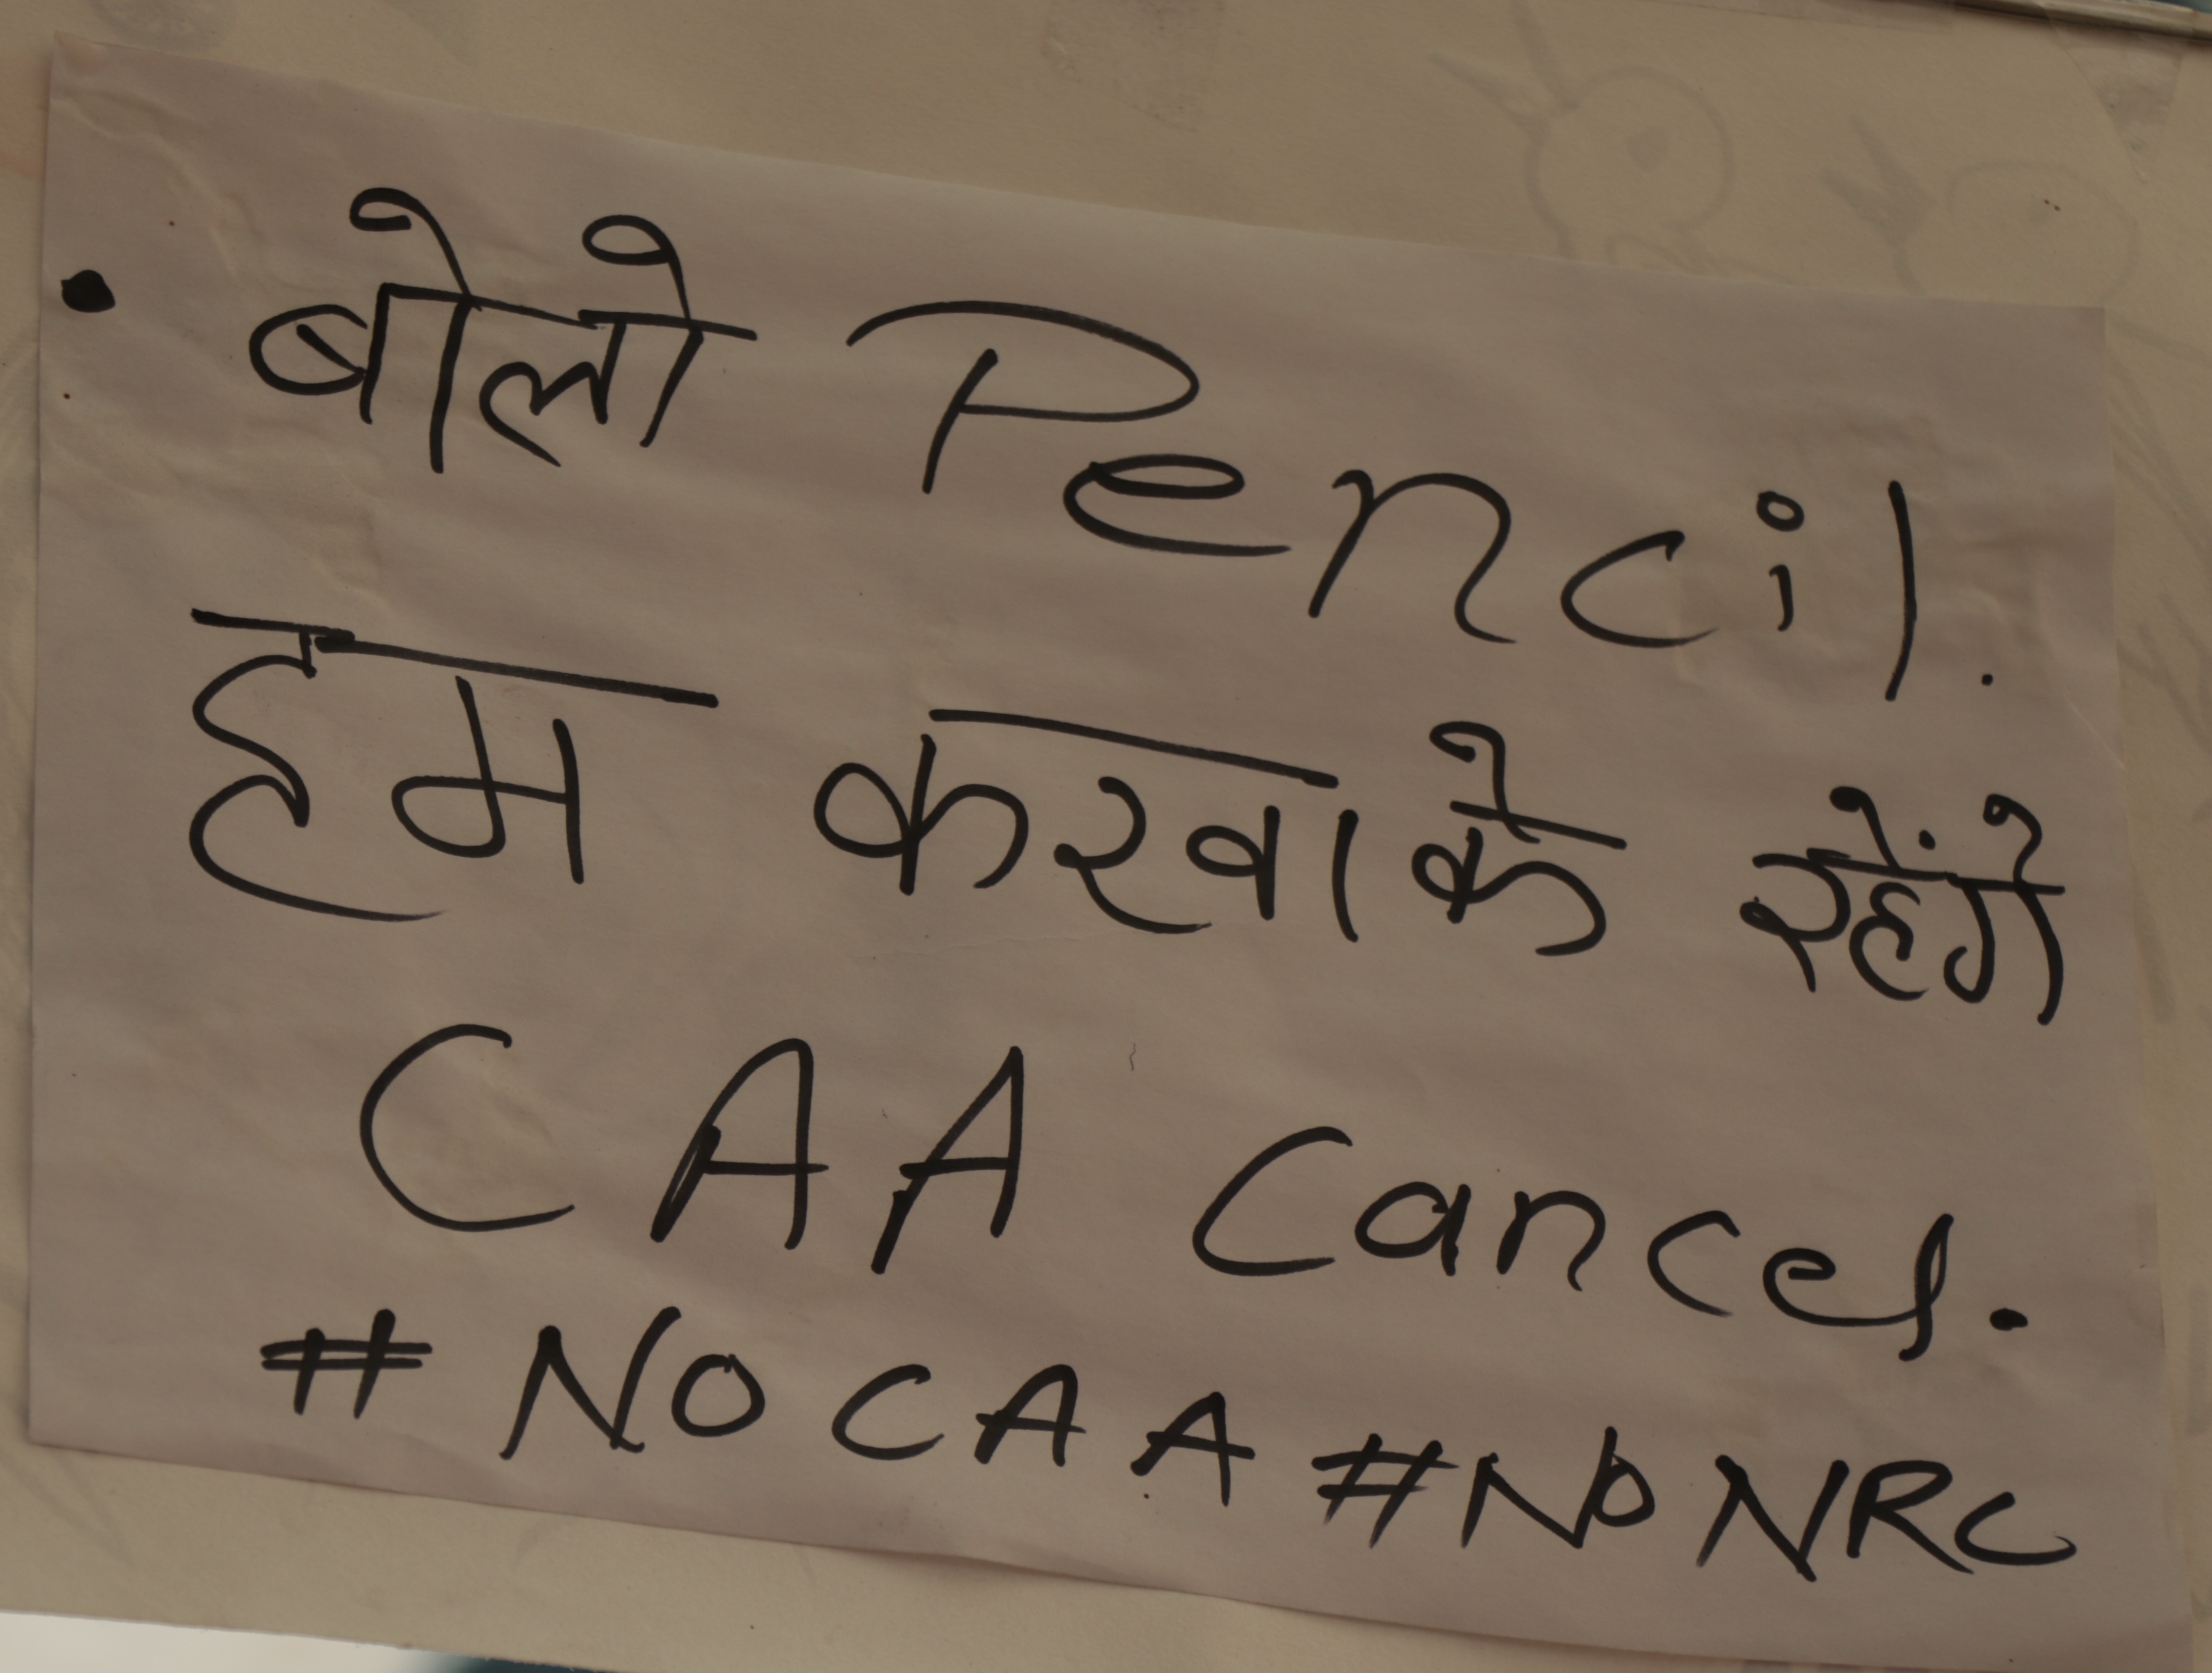 • बोलो Pencil.
हम करवाके रहेंगे
CAA Cancel.
# NO CAA #NO NRC